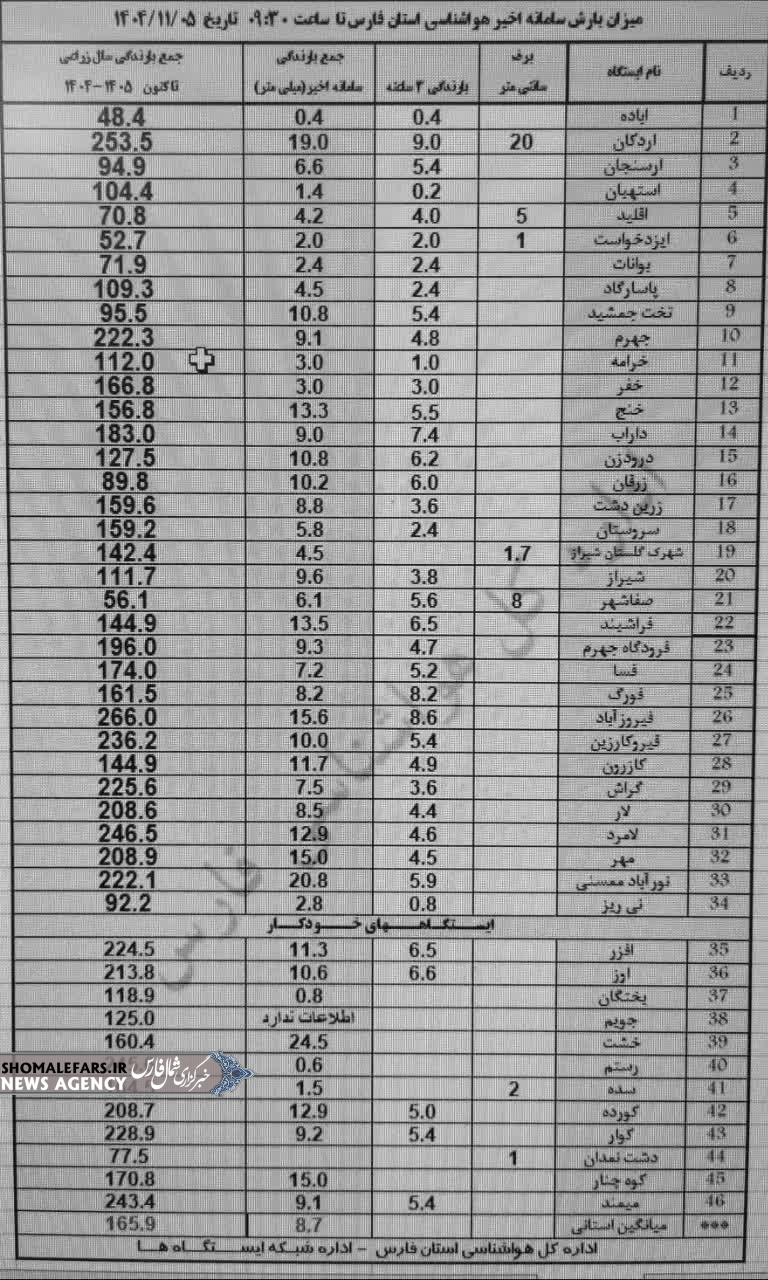 میزان بارش سامانه اخیر هواشناسی استان فارس تا ساعت ۰۹:۳۰ تاریخ ۱۴۰۴/۱۱/۰۵
ردیف نام ایستگاه برف سانتی متر بارندگی ۳ ساعته جمع بارندگی سامانه اخیر(میلی متر) جمع بارندگی سال زراعی تاکنون ۱۴۰۵-۱۴۰۴
1 آباده 0.4 0.4 48.4
2 اردکان 20 9.0 19.0 253.5
3 ارسنجان 5.4 6.6 94.9
4 استهبان 0.2 1.4 104.4
5 اقلید 5 4.0 4.2 70.8
6 ایزدخواست 1 2.0 2.0 52.7
7 بوانات 2.4 2.4 71.9
8 پاسارگاد 2.4 4.5 109.3
9 تخت جمشید 5.4 10.8 95.5
10 جهرم 4.8 9.1 222.3
11 خرامه 1.0 3.0 112.0
12 خفر 3.0 3.0 166.8
13 خنج 5.5 13.3 156.8
14 داراب 7.4 9.0 183.0
15 درودزن 6.2 10.8 127.5
16 زرقان 6.0 10.2 89.8
17 زرین دشت 3.6 8.8 159.6
18 سروستان 2.4 5.8 159.2
19 شهرک گلستان شیراز 1.7 4.5 142.4
20 شیراز 3.8 9.6 111.7
21 صفاشهر 8 5.6 6.1 56.1
22 فراشبند 6.5 13.5 144.9
23 فرودگاه جهرم 4.7 9.3 196.0
24 فسا 5.2 7.2 174.0
25 فورگ 8.2 8.2 161.5
26 فیروزآباد 8.6 15.6 266.0
27 قیروکارزین 5.4 10.0 236.2
28 کازرون 4.9 11.7 144.9
29 گراش 3.6 7.5 225.6
30 لار 4.4 8.5 208.6
31 لامرد 4.6 12.9 246.5
32 مهر 4.5 15.0 208.9
33 نورآباد ممسنی 5.9 20.8 222.1
34 نی ریز 0.8 2.8 92.2
ایستگاههای خودکار
35 افزر 6.5 11.3 224.5
36 اوز 6.6 10.6 213.8
37 بختگان 0.8 118.9
38 جویم اطلاعات ندارد 125.0
39 خشت 24.5 160.4
40 رستم 0.6
41 سده 2 1.5
42 کورده 5.0 12.9 208.7
43 کوار 5.4 9.2 228.9
44 دشت نمدان 1 77.5
45 کوه چنار 15.0 170.8
46 میمند 5.4 9.1 243.4
*** میانگین استانی 8.7 165.9
اداره کل هواشناسی استان فارس - اداره شبکه ایستگاه ها
اداره کل هواشناسی فارس
SHOMALEFARS.IR
NEWS AGENCY
خبرگزاری شمال فارس